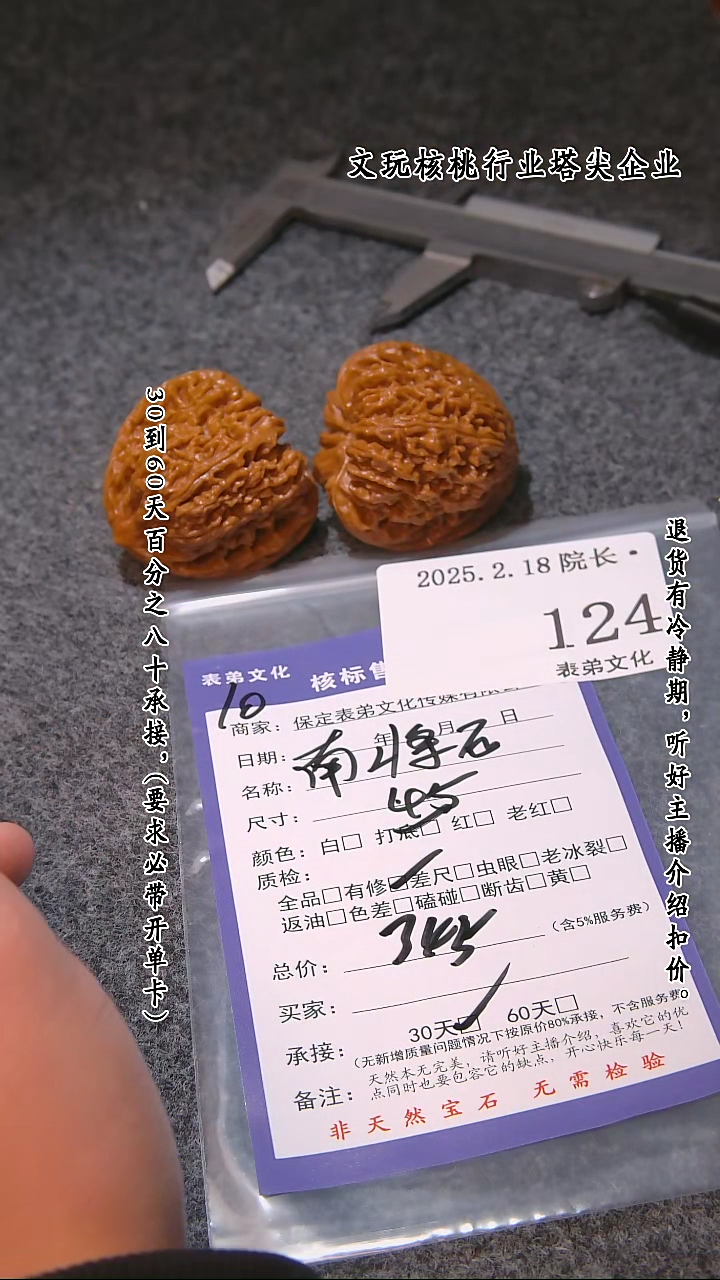 文玩核桃行业塔尖企业
30到60天百分之八十承接，（要求必带开单卡）
退货有冷静期，听好主播介绍扣价。
2025.2.18 院长·
124
表弟文化
表弟文化 核标售
10
商家：保定表弟文化传媒有限公司
日期： 年 月 日
名称：南将石
尺寸：45
颜色：白□ 打底□ 红□ 老红□
质检：
全品□有修□差尺□虫眼□老冰裂□
返油□色差□磕碰□断齿□黄□
总价： （含5%服务费）
买家：
承接：30天□ 60天□
（无新增质量问题情况下按原价80%承接，不含服务费
备注：天然本无完美，请听好主播介绍，喜欢它的优
点同时也要包容它的缺点，开心快乐每一天！
非天然宝石 无需检验